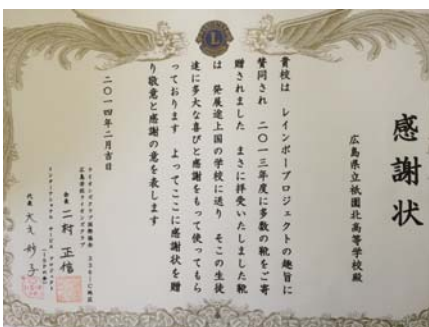 感謝状
広島県立祇園北高等学校殿
貴校は レインボープロジェクトの趣旨に
賛同され 二〇一三年度に多数の靴をご寄
贈されました まさに拝受いたしました靴
は 発展途上国の学校に送り そこの生徒
達に多大な喜びと感謝をもって使ってもら
っております よってここに感謝状を贈
り敬意と感謝の意を表します
二〇一四年二月吉日
ライオンズクラブ国際協会 336-C地区
会長 二村 正信
代表 大文 妙子
L